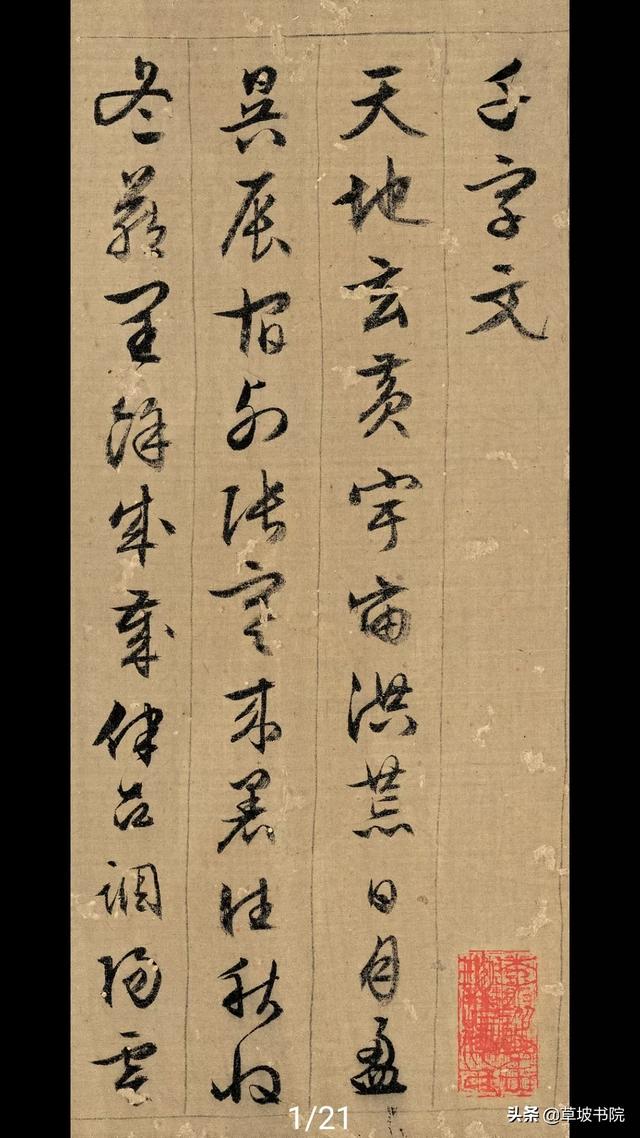 千字文
天地玄黄宇宙洪荒日月盈
昃辰宿列張寒来暑往秋收
冬蔵閏餘成歳律吕調陽雲
1/21
头条 @草坡书院